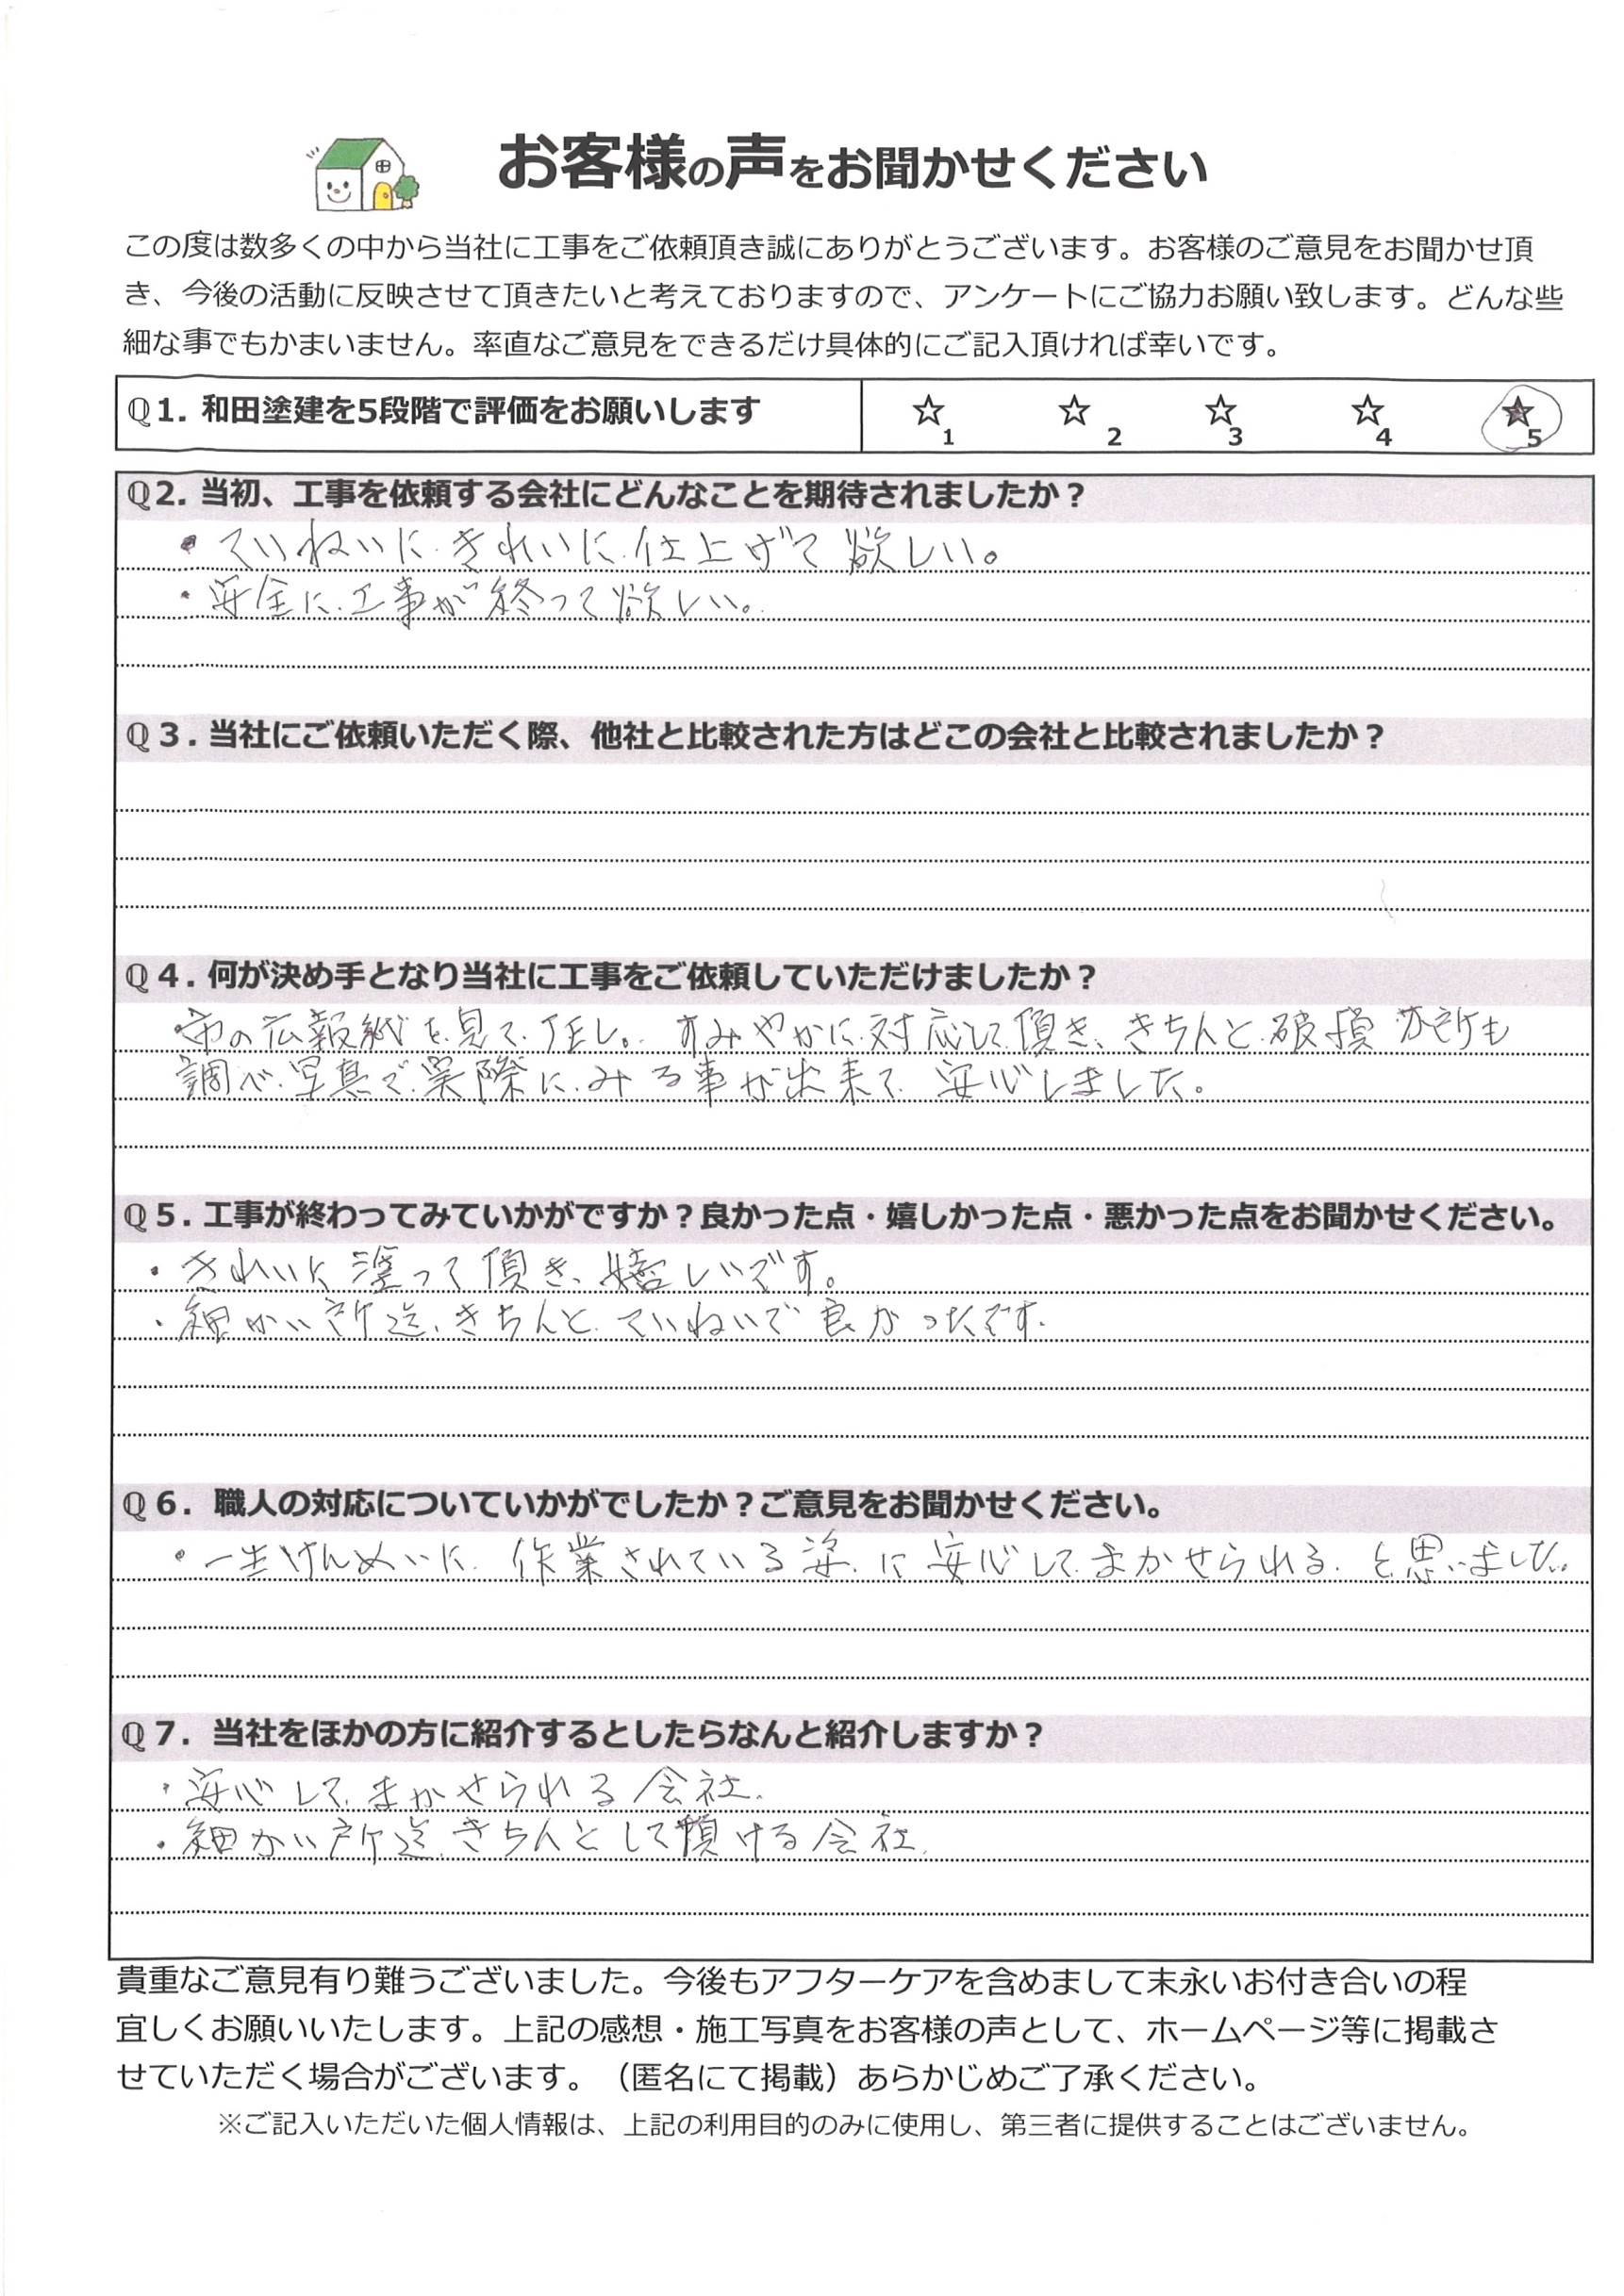 お客様の声をお聞かせください
この度は数多くの中から当社に工事をご依頼頂き誠にありがとうございます。お客様のご意見をお聞かせ頂
き、今後の活動に反映させて頂きたいと考えておりますので、アンケートにご協力お願い致します。どんな些
細な事でもかまいません。率直なご意見をできるだけ具体的にご記入頂ければ幸いです。
Q1. 和田塗建を5段階で評価をお願いします ☆1 ☆2 ☆3 ☆4 ★5
Q2. 当初、工事を依頼する会社にどんなことを期待されましたか？
・ていねいに.きれいに.仕上げて欲しい。
・安全に.工事が終って欲しい。
Q３. 当社にご依頼いただく際、他社と比較された方はどこの会社と比較されましたか？
Q４. 何が決め手となり当社に工事をご依頼していただけましたか？
・市の広報紙を見て、TELし。すみやかに対応して頂き、きちんと破損か所も
調べ.写真で実際に.みる事が出来て、安心しました。
Q５. 工事が終わってみていかがですか？良かった点・嬉しかった点・悪かった点をお聞かせください。
・きれいに塗って頂き、嬉しいです。
・細かい所迄、きちんと.ていねいで良かったです.
Q６. 職人の対応についていかがでしたか？ご意見をお聞かせください。
・一生けんめいに.作業されている姿.に安心してまかせられる.と思いました。
Q７. 当社をほかの方に紹介するとしたらなんと紹介しますか？
・安心してまかせられる会社.
・細かい所迄.きちんとして頂ける会社.
貴重なご意見有り難うございました。今後もアフターケアを含めまして末永いお付き合いの程
宜しくお願いいたします。上記の感想・施工写真をお客様の声として、ホームページ等に掲載さ
せていただく場合がございます。（匿名にて掲載）あらかじめご了承ください。
※ご記入いただいた個人情報は、上記の利用目的のみに使用し、第三者に提供することはございません。